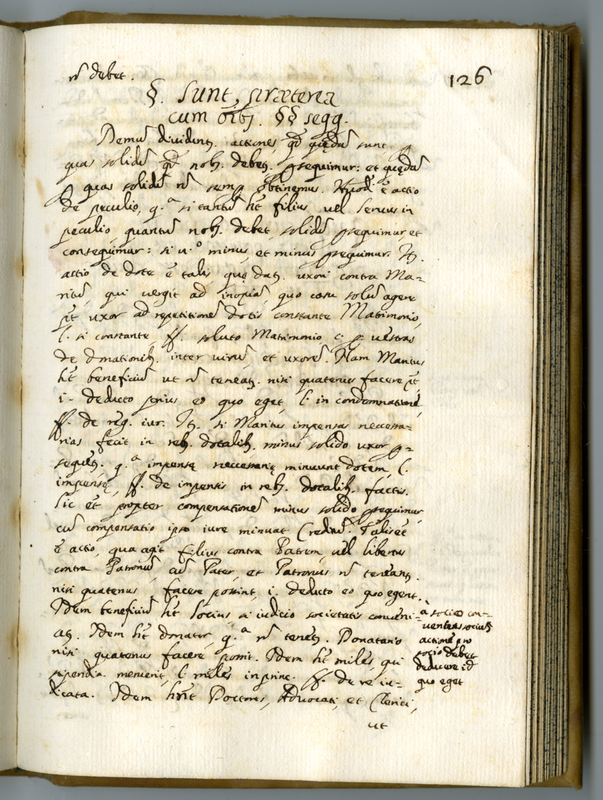 126
nō debet.
§. Sunt præterea
cum oībj. §§ segg.
Demū dividentj. actiones qd quędā sunt
quas solidū qd nobj. debetj. psequimur: et quędā
quas solidū nō semp obtinemus. è actio
de peculio, q.ª si tantū hēt filius vel servus in
peculio quantum nobj. debet, solidū psequimur et
consequimur: si v.º minus, et minus psequimur. It.
actio de dote è talis quę datj. uxori contra Ma-
ritū, qui vergit ad inopiā, quo casu solū agere
pōt uxor ad repetitionē dotis constante Matrimonio,
l. si constante ff. soluto Matrimonio
de donationibj. inter virū et uxorē. Nam Maritus
hēt beneficiū ut nō teneatj. nisi quatenus facere pōt
i. deducto prius eo quo eget l. in condemnatione
ff. de reg. iur. It. si Maritus impensas necessa-
rias fecit in rebj. dotalibj. minus solido uxor p-
sequitj. q.ª impensę necessarię minuunt dotem, l.
impensę, ff. de impensis in rebj. dotalibj. factis.
Sic et propter compensationē minus solido psequimur
cū compensatio ipso iure minuat Creditū. Talis ēt
è actio, qua agit filius contra Patrem vel libertus
contra Patronū cū Pater et Patronus nō teneantj.
nisi quatenus facere possint, i. deducto eo quo egent.
Idem beneficiū hēt Socius a iudicio societatis conveni-
atj. Idem hēt donator q.ª nō tenetj. Donatario
nisi quatenus facere possit. Idem hēt miles qui
stipendia meruerit l. miles in princ. ff. de re iu-
dicata. Idem hēnt Doctores, Advocati, et Clerici,
ut
a socio con-
ventus socius
actione pro
socio debet
deducere id
quo eget